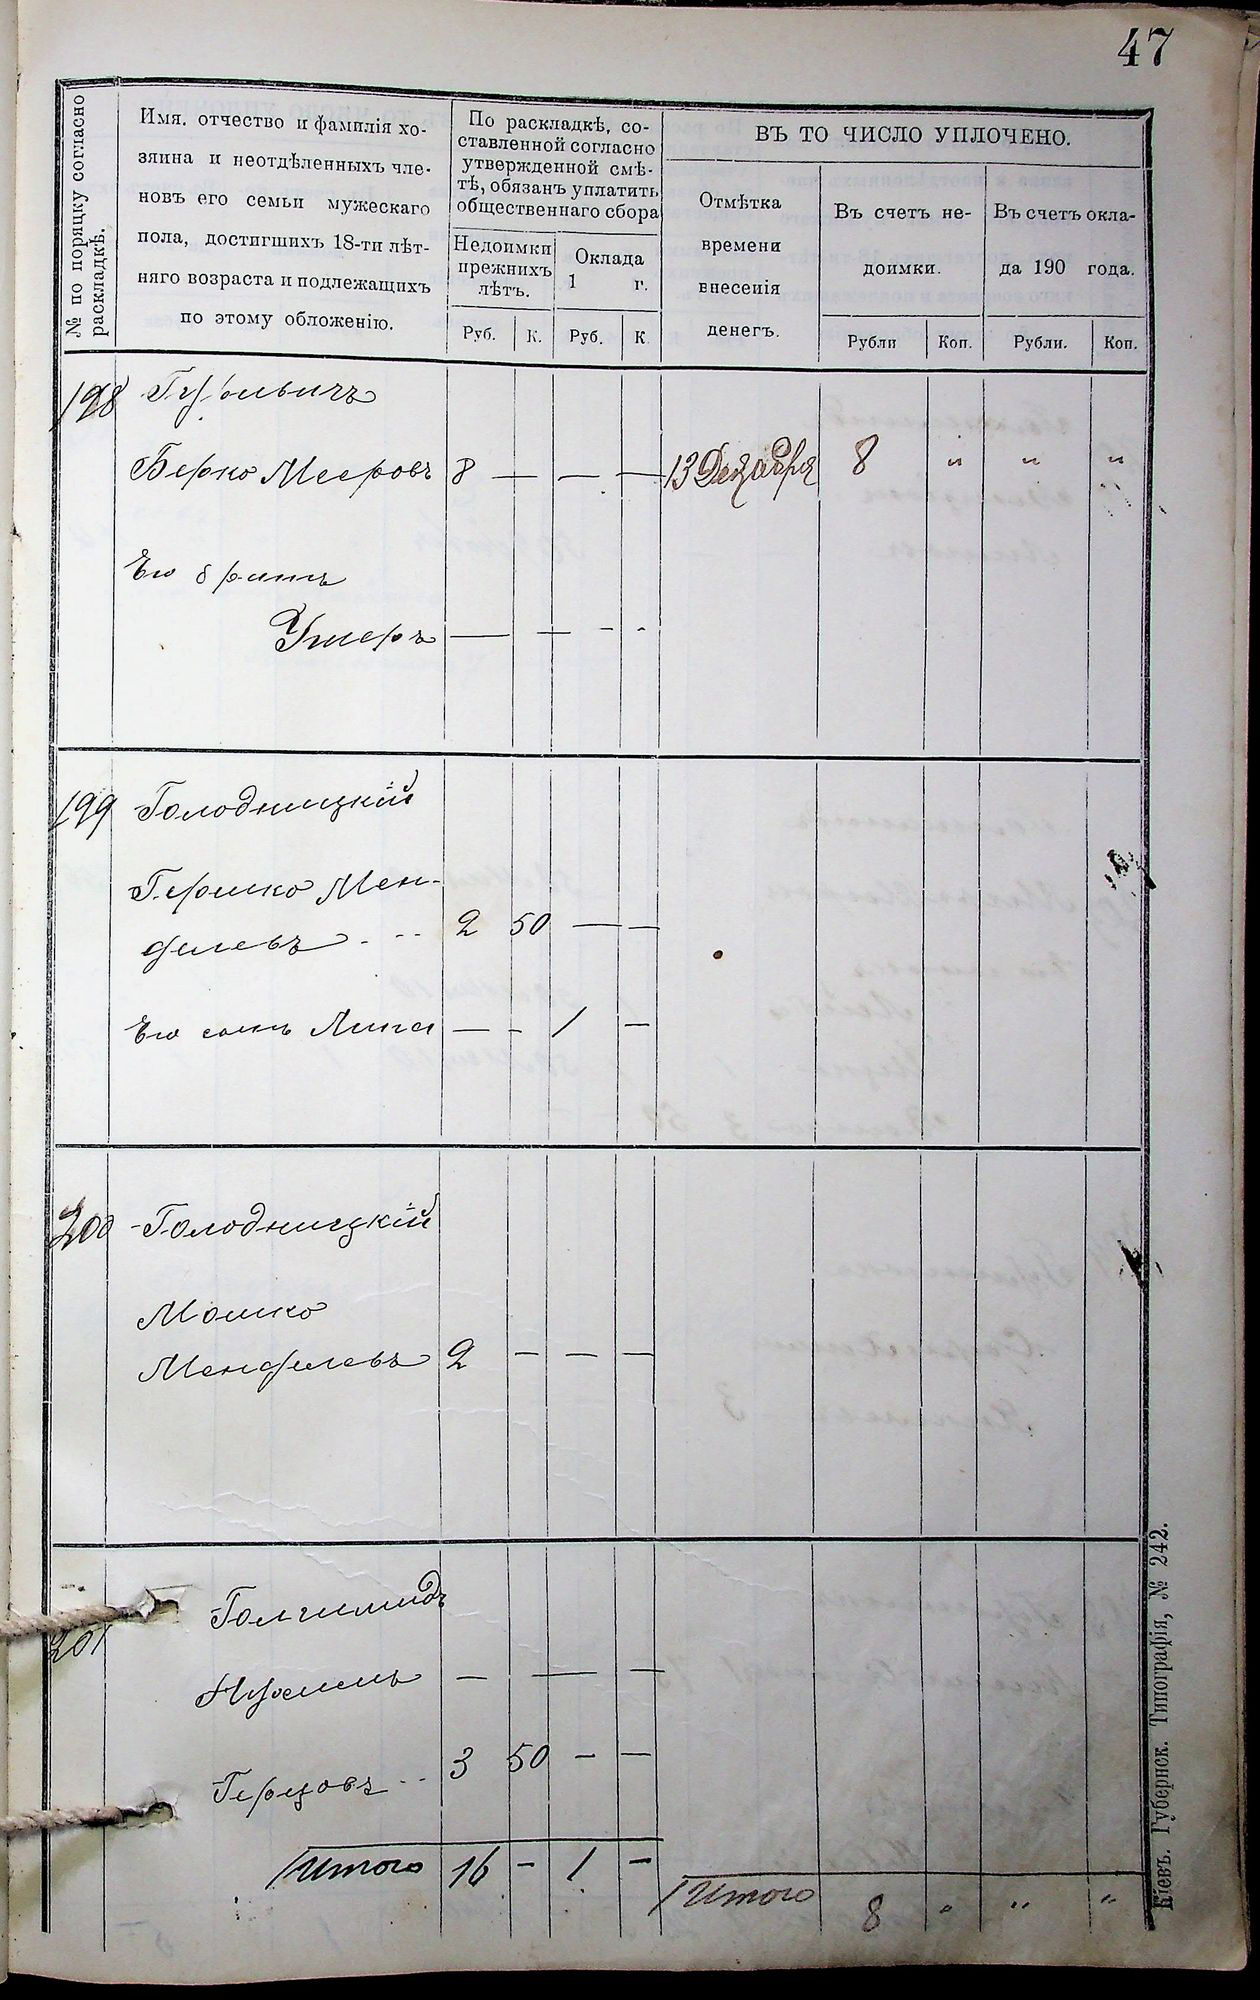 47
№ по порядку согласно
раскладкѣ.
Имя. отчество и фамилія хо-
зяина и неотдѣленныхъ чле-
новъ его семьи мужескаго
пола, достигшихъ 18-ти лѣт-
няго возраста и подлежащихъ
по этому обложенію.
По раскладкѣ, со-
ставленной согласно
утвержденной смѣ-
тѣ, обязанъ уплатить
общественнаго сбора
Недоимки
прежнихъ
лѣтъ.
Оклада
1 г.
Руб. К. Руб. К
ВЪ ТО ЧИСЛО УПЛОЧЕНО.
Отмѣтка
времени
внесенія
денегъ.
Въ счетъ не-
доимки.
Въ счетъ окла-
да 190 года.
Рубли Коп. Рубли. Коп.
198 Гурвичъ
Берко Мееровъ 8 — — — 13 Декабря 8 " " "
Его братъ
Ушеръ — — - -
199 Голодницкій
Гершко Мен-
делевъ 2 50 — —
Его сынъ Липа — - 1 —
200 Голодницкій
Мошко
Менделевъ 2 — — —
201 Голчмидъ
— — —
Герцовъ 3 50 — —
Итого 16 - 1 -
Итого 8 " " "
Кіевъ. Губернск. Типографія, № 242.